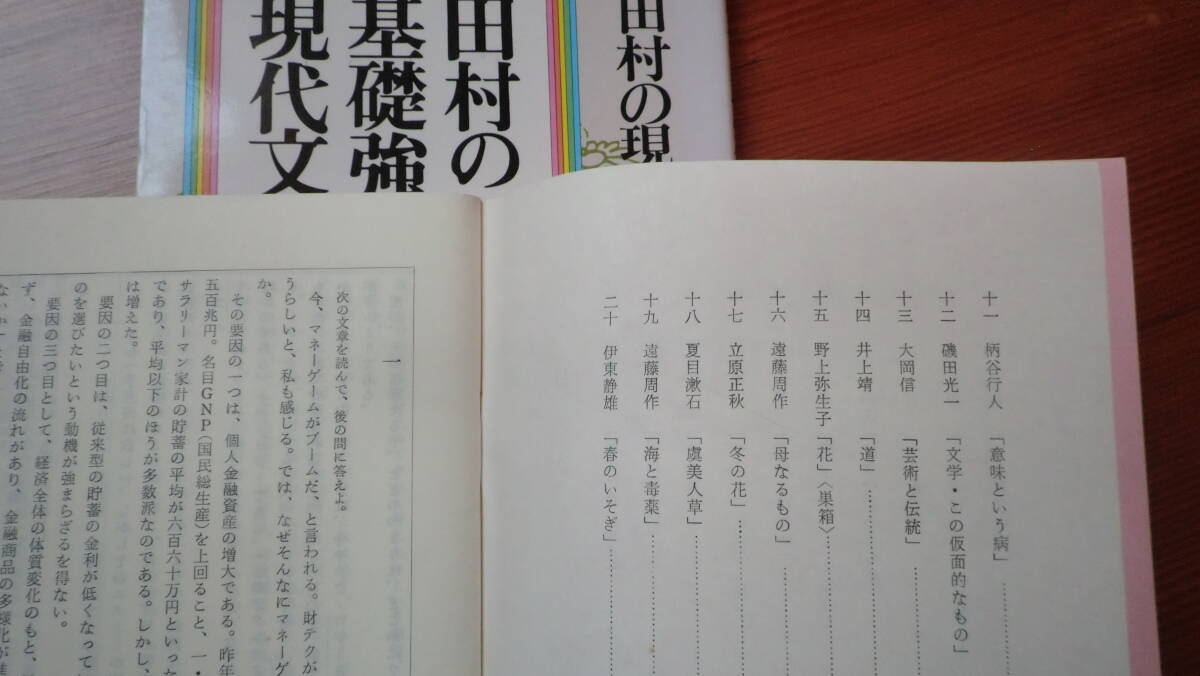 田村の現
田村の
基礎強
現代文
十一 柄谷行人 「意味という病」…………
十二 磯田光一 「文学・この仮面的なもの」…
十三 大岡信 「芸術と伝統」…………
十四 井上靖 「道」…………
十五 野上弥生子 「花」〈巣箱〉…………
十六 遠藤周作 「母なるもの」…………
十七 立原正秋 「冬の花」…………
十八 夏目漱石 「虞美人草」…………
十九 遠藤周作 「海と毒薬」…………
二十 伊東静雄 「春のいそぎ」…………
一
次の文章を読んで、後の問に答えよ。
今、マネーゲームがブームだ、と言われる。財テクが
うらしいと、私も感じる。では、なぜそんなにマネーゲ
か。
その要因の一つは、個人金融資産の増大である。昨年
五百兆円。名目GNP(国民総生産)を上回ること、一・
サラリーマン家計の貯蓄の平均が六百六十万円といった
であり、平均以下のほうが多数派なのである。しかし、
は増えた。
要因の二つ目は、従来型の貯蓄の金利が低くなって
のを選びたいという動機が強まらざるを得ない。
要因の三つ目として、経済全体の体質変化のもと、
ず、金融自由化の流れがあり、金融商品の多様化が進